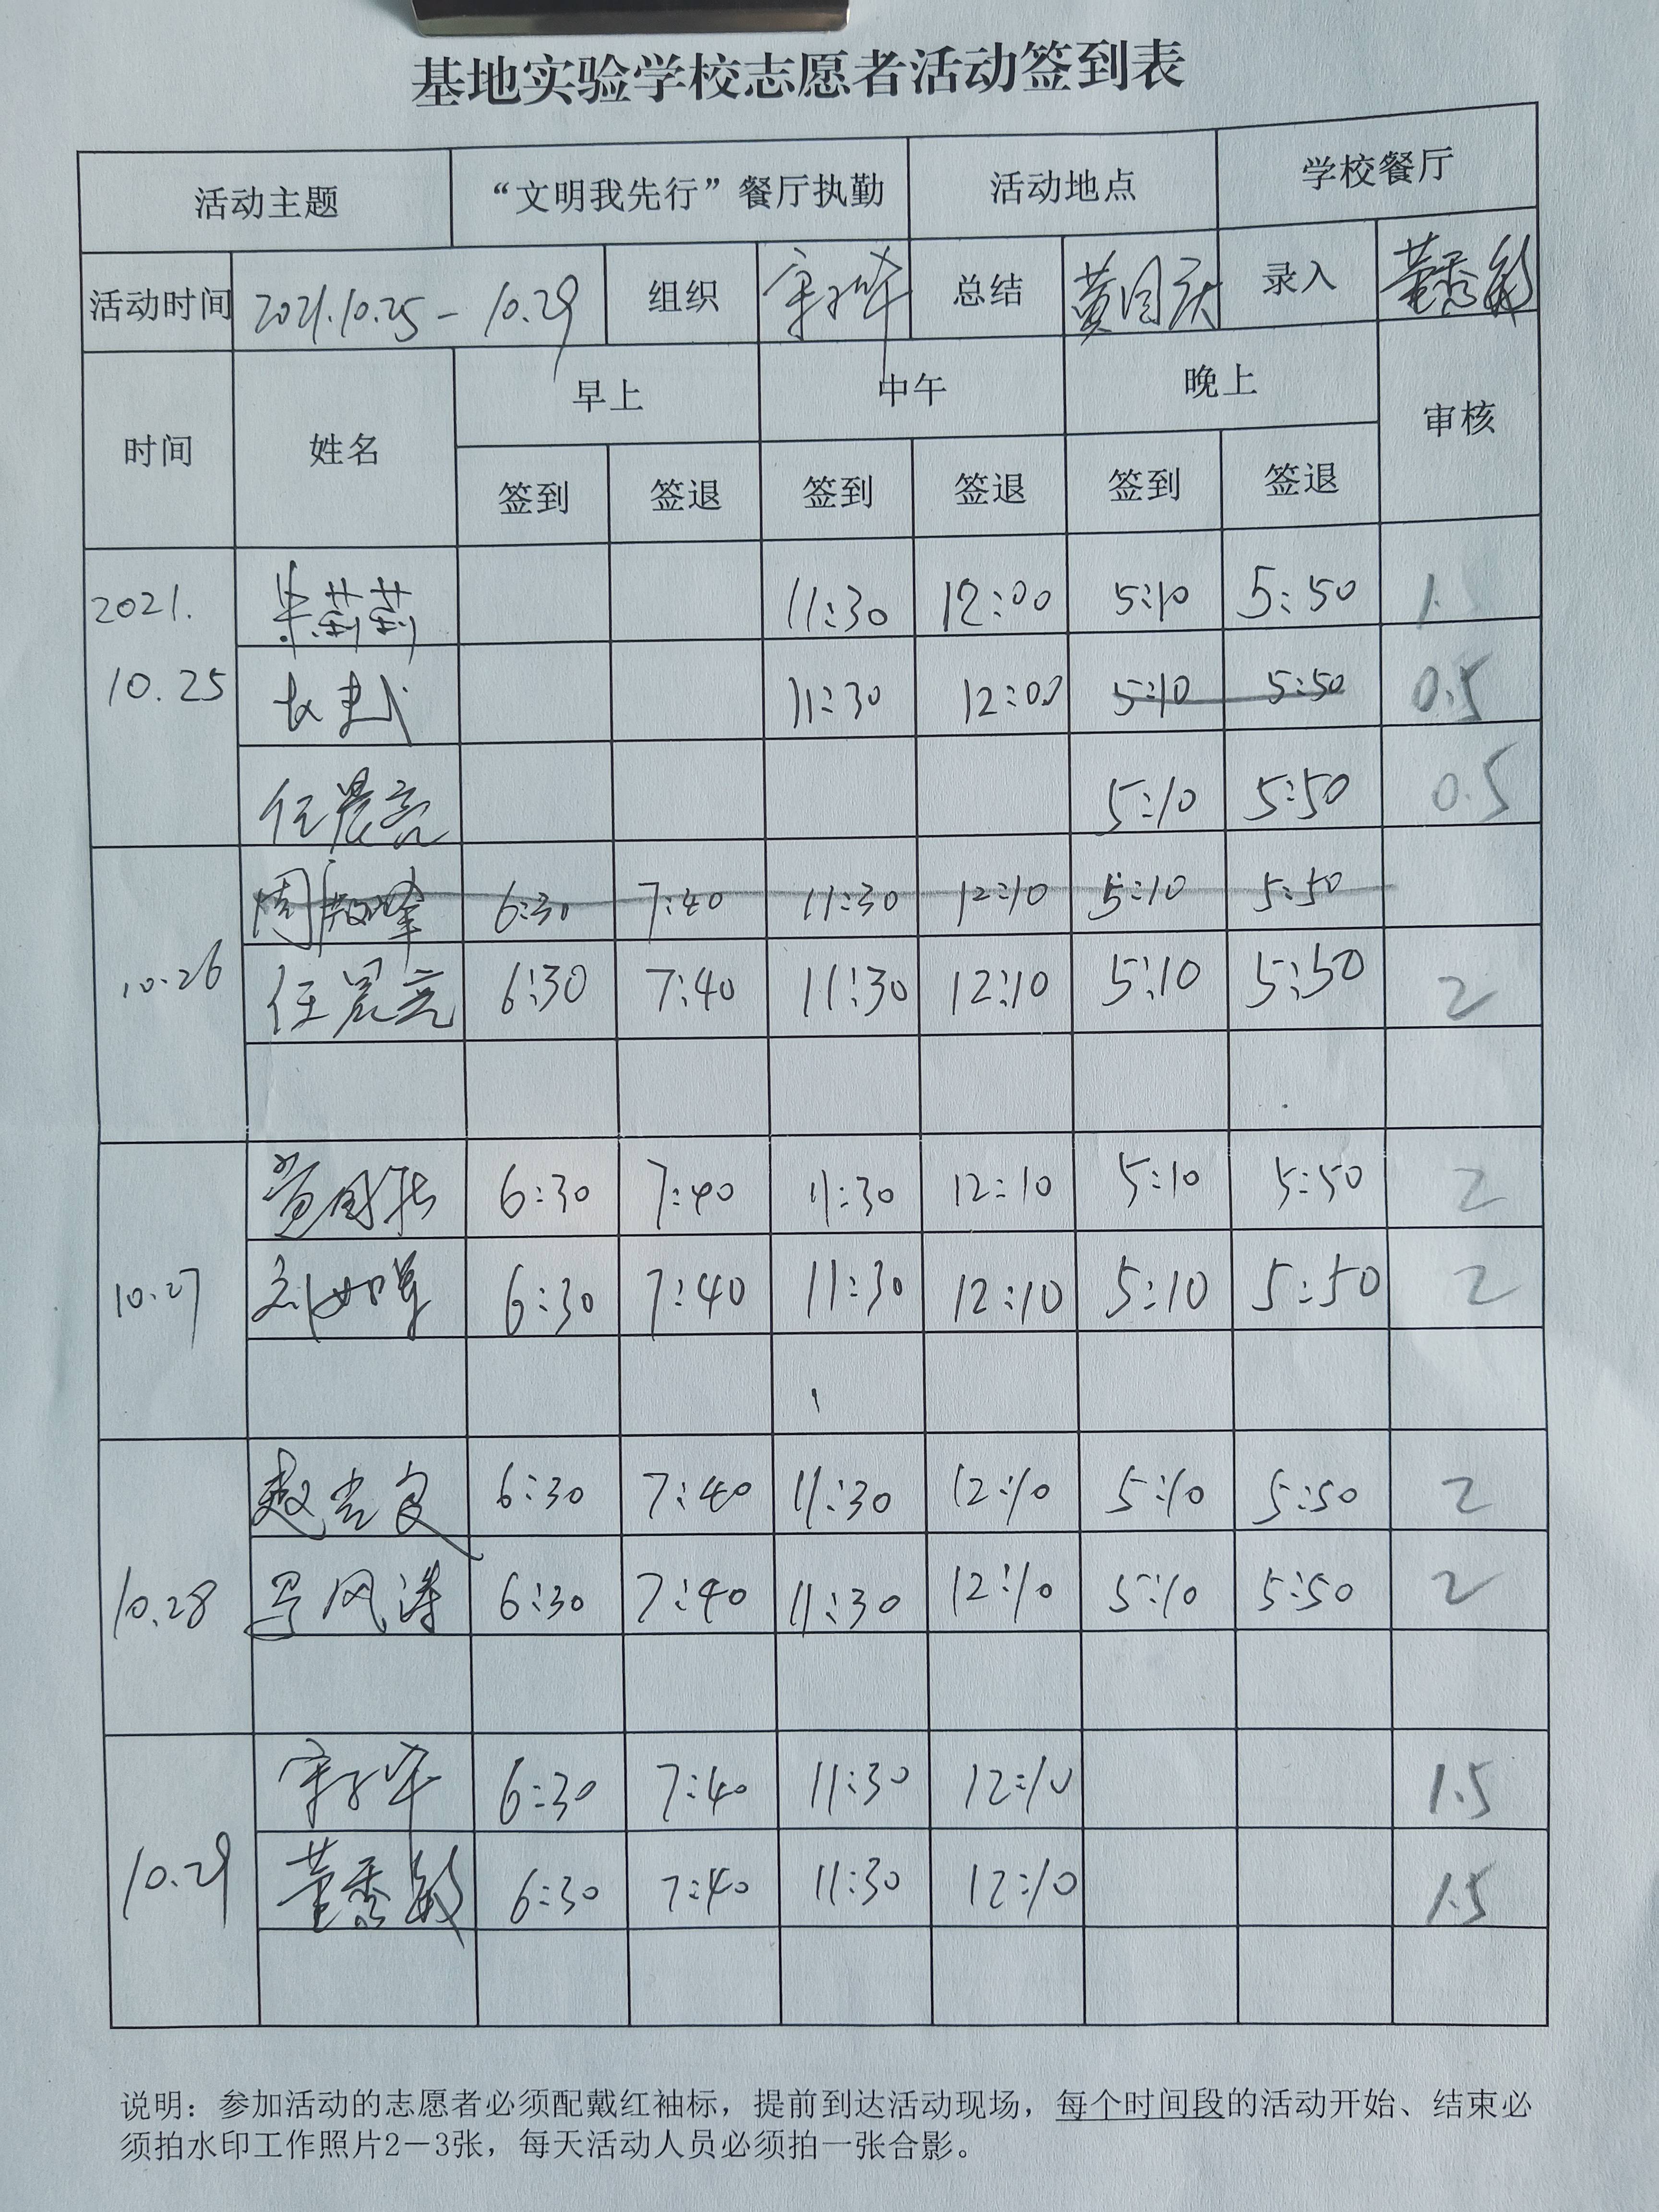 基地实验学校志愿者活动签到表
活动主题 “文明我先行”餐厅执勤 活动地点 学校餐厅
活动时间 2021.10.25 - 10.29 组织 总结 黄国庆 录入 董秀敏
时间 姓名 早上 中午 晚上 审核
签到 签退 签到 签退 签到 签退
2021. 11:30 12:00 5:10 5:50
10.25 11:30 12:00 5:10 5:50 0.5
任晨亮 5:10 5:50 0.5
6:30 7:40 11:30 12:10 5:10 5:50
10.26 任晨亮 6:30 7:40 11:30 12:10 5:10 5:50 2
6:30 7:40 11:30 12:10 5:10 5:50 2
10.27 6:30 7:40 11:30 12:10 5:10 5:50 2
6:30 7:40 11:30 12:10 5:10 5:50 2
10.28 6:30 7:40 11:30 12:10 5:10 5:50 2
6:30 7:40 11:30 12:10 1.5
10.29 董秀敏 6:30 7:40 11:30 12:10 1.5
说明：参加活动的志愿者必须配戴红袖标，提前到达活动现场，每个时间段的活动开始、结束必
须拍水印工作照片2－3张，每天活动人员必须拍一张合影。